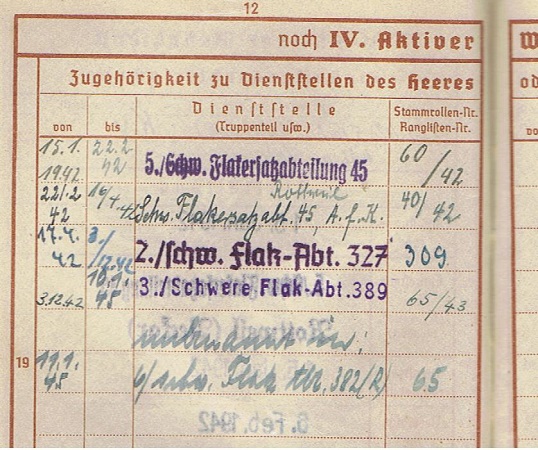 12
noch IV. Aktiver
Zugehörigkeit zu Dienststellen des Heeres
von
bis
Dienststelle
(Truppenteil usw.)
Stammrollen-Nr.
Ranglisten-Nr.
15.1.
1942
22.2
42
5./Schw. Flakersatzabteilung 45
60/42
Rottweil
22/.2
42
16/4 42
Schw. Flakersatzabt. 45, A.f.K.
40/42
17.4.
42
3./12.42
2./schw. Flak-Abt. 327
309
3.12.42
18.1.
45
3./Schwere Flak-Abt. 389
65/43
umbenannt in:
19
19.1.
45
6/schw. Flak Abt. 382(R)
65
6. Feb. 1942